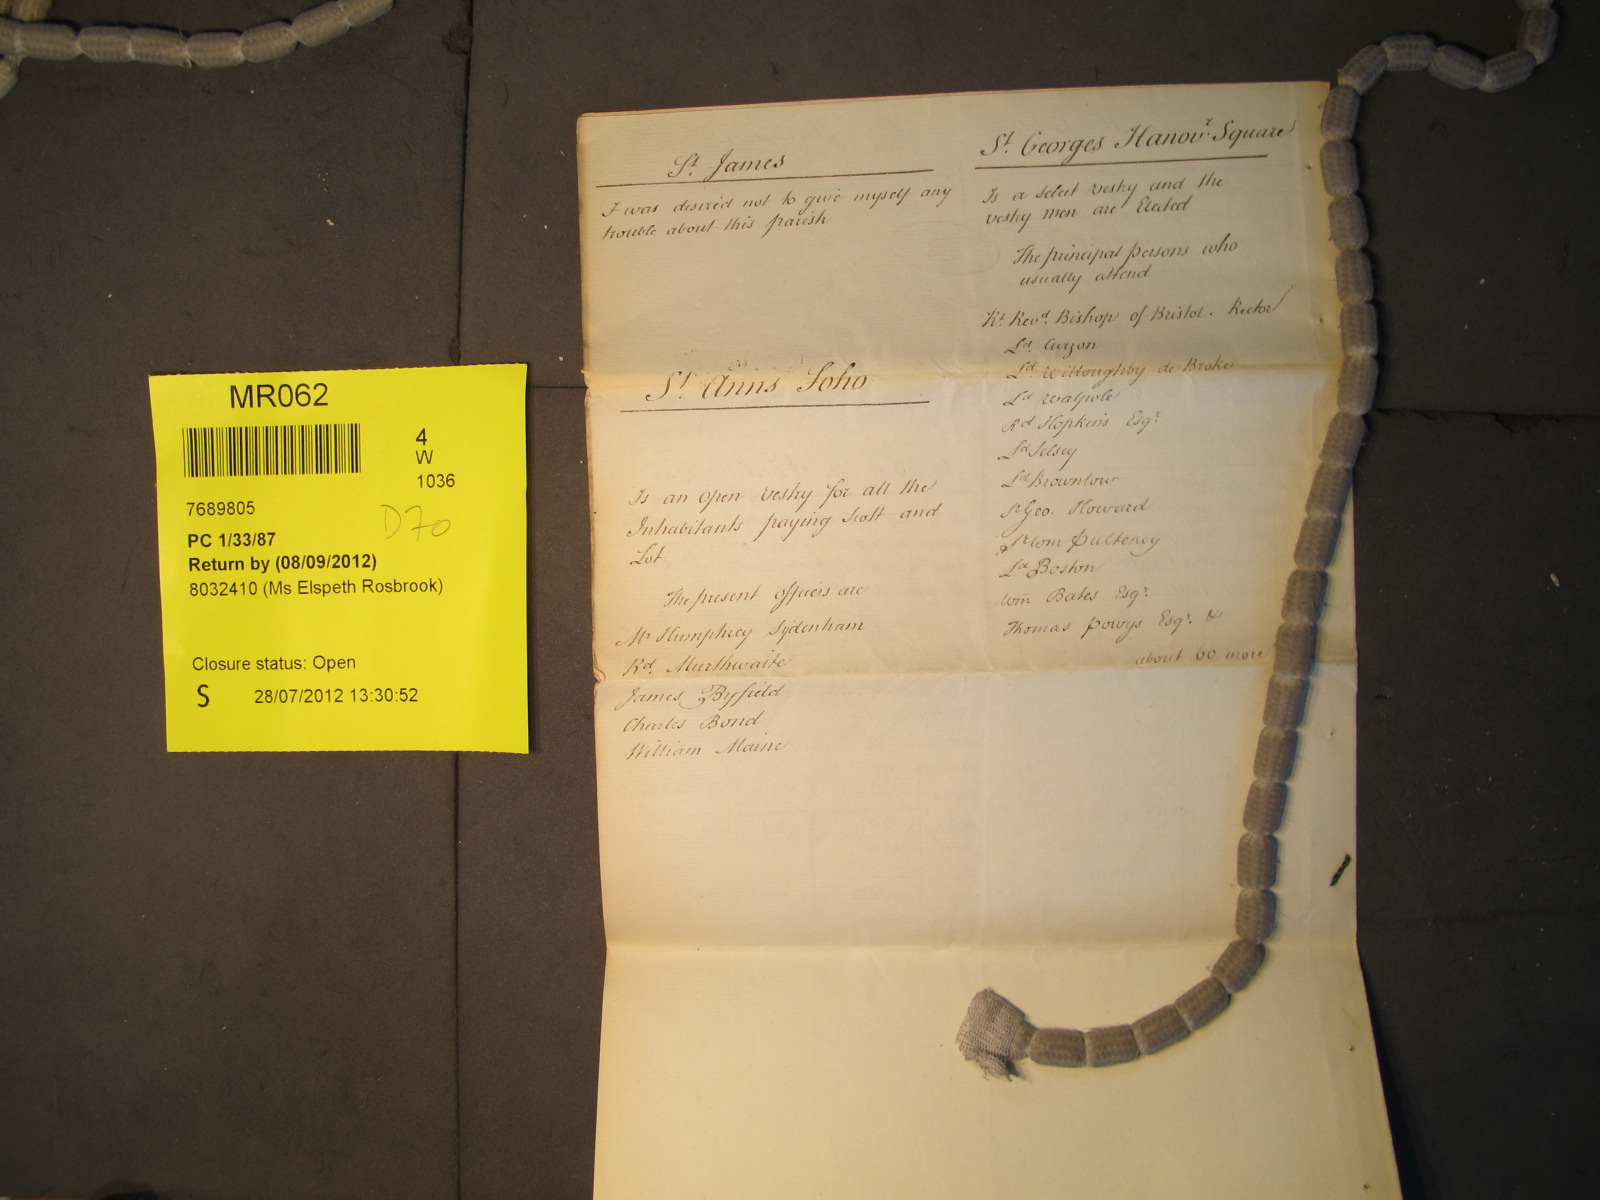 MR062
4
W
1036
7689805
D70
PC 1/33/87
Return by (08/09/2012)
8032410 (Ms Elspeth Rosbrook)
Closure status: Open
S 28/07/2012 13:30:52
St. James
I was desired not to give myself any
trouble about this parish
St. Anns Soho
Is an open vestry for all the
Inhabitants paying Scott and
Lot
The present officers are
Mr Humphrey Sydenham
Rd. Murthwaite
James Byfield
Charles Bond
William Maine
St. Georges Hanovr. Square
Is a select vestry and the
vestry men are Elected
The principal persons who
usually attend
Rt. Revd. Bishop of Bristol. Rector
Ld. Curzon
Ld. Willoughby de Broke
Ld Walpole
Rd Hopkins Esqr.
Ld Selsey
Ld Brownlow
Sr Geo. Howard
Sr Wm Pulteney
Ld Boston
Wm Bates Esqr.
Thomas Powys Esqr. &
about 60 more